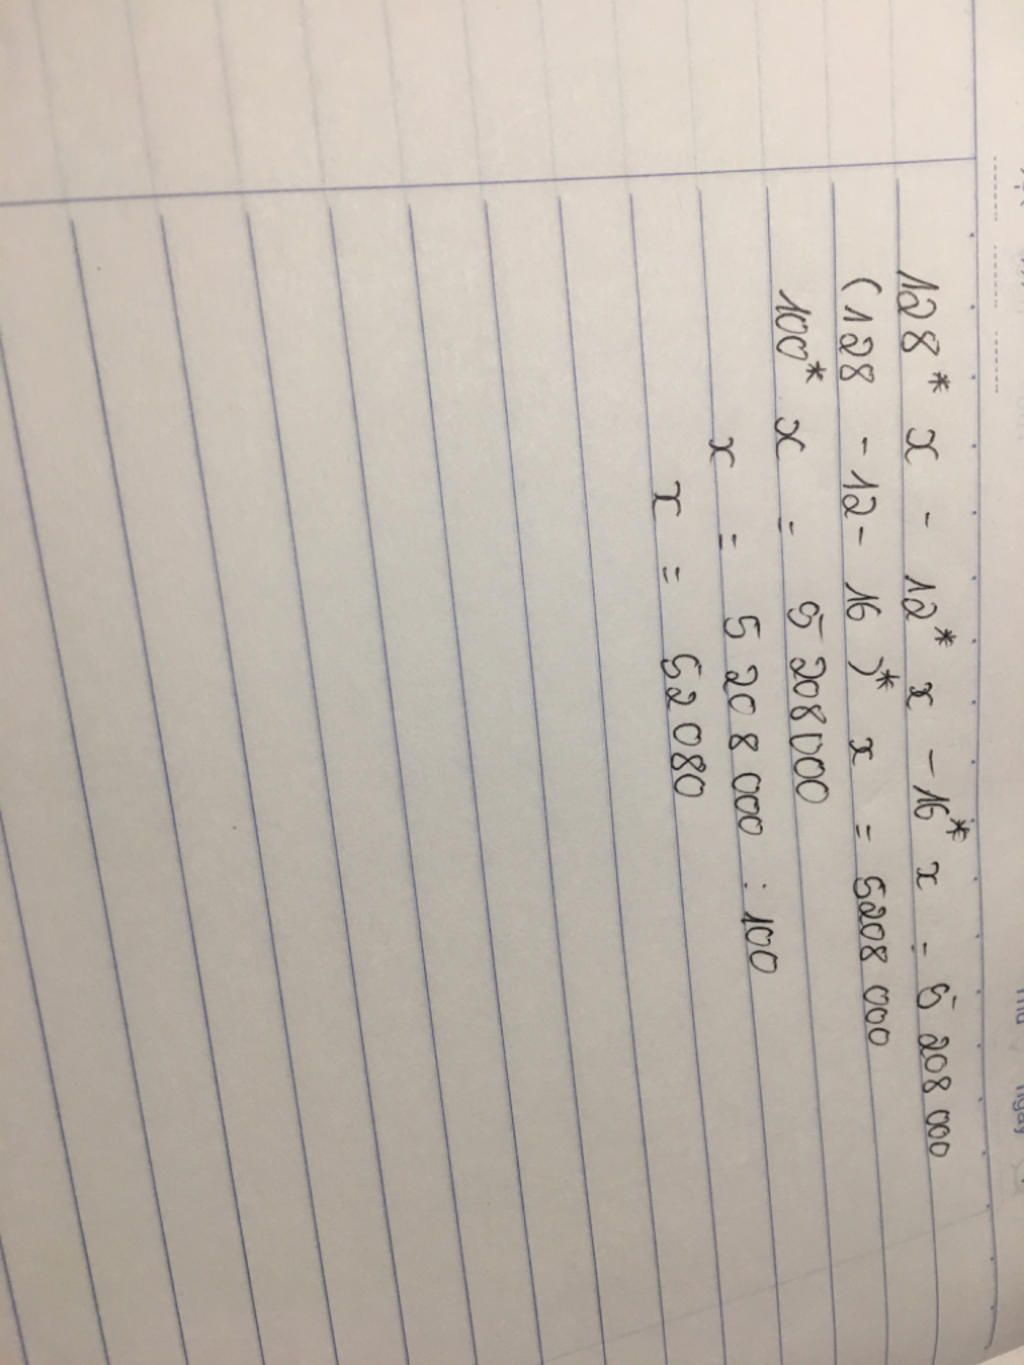 128* x - 12* x - 16* x = 5 208 000
(128 - 12 - 16 )* x = 5208 000
100* x = 5 208000
x = 5 208 000 : 100
x = 52 080